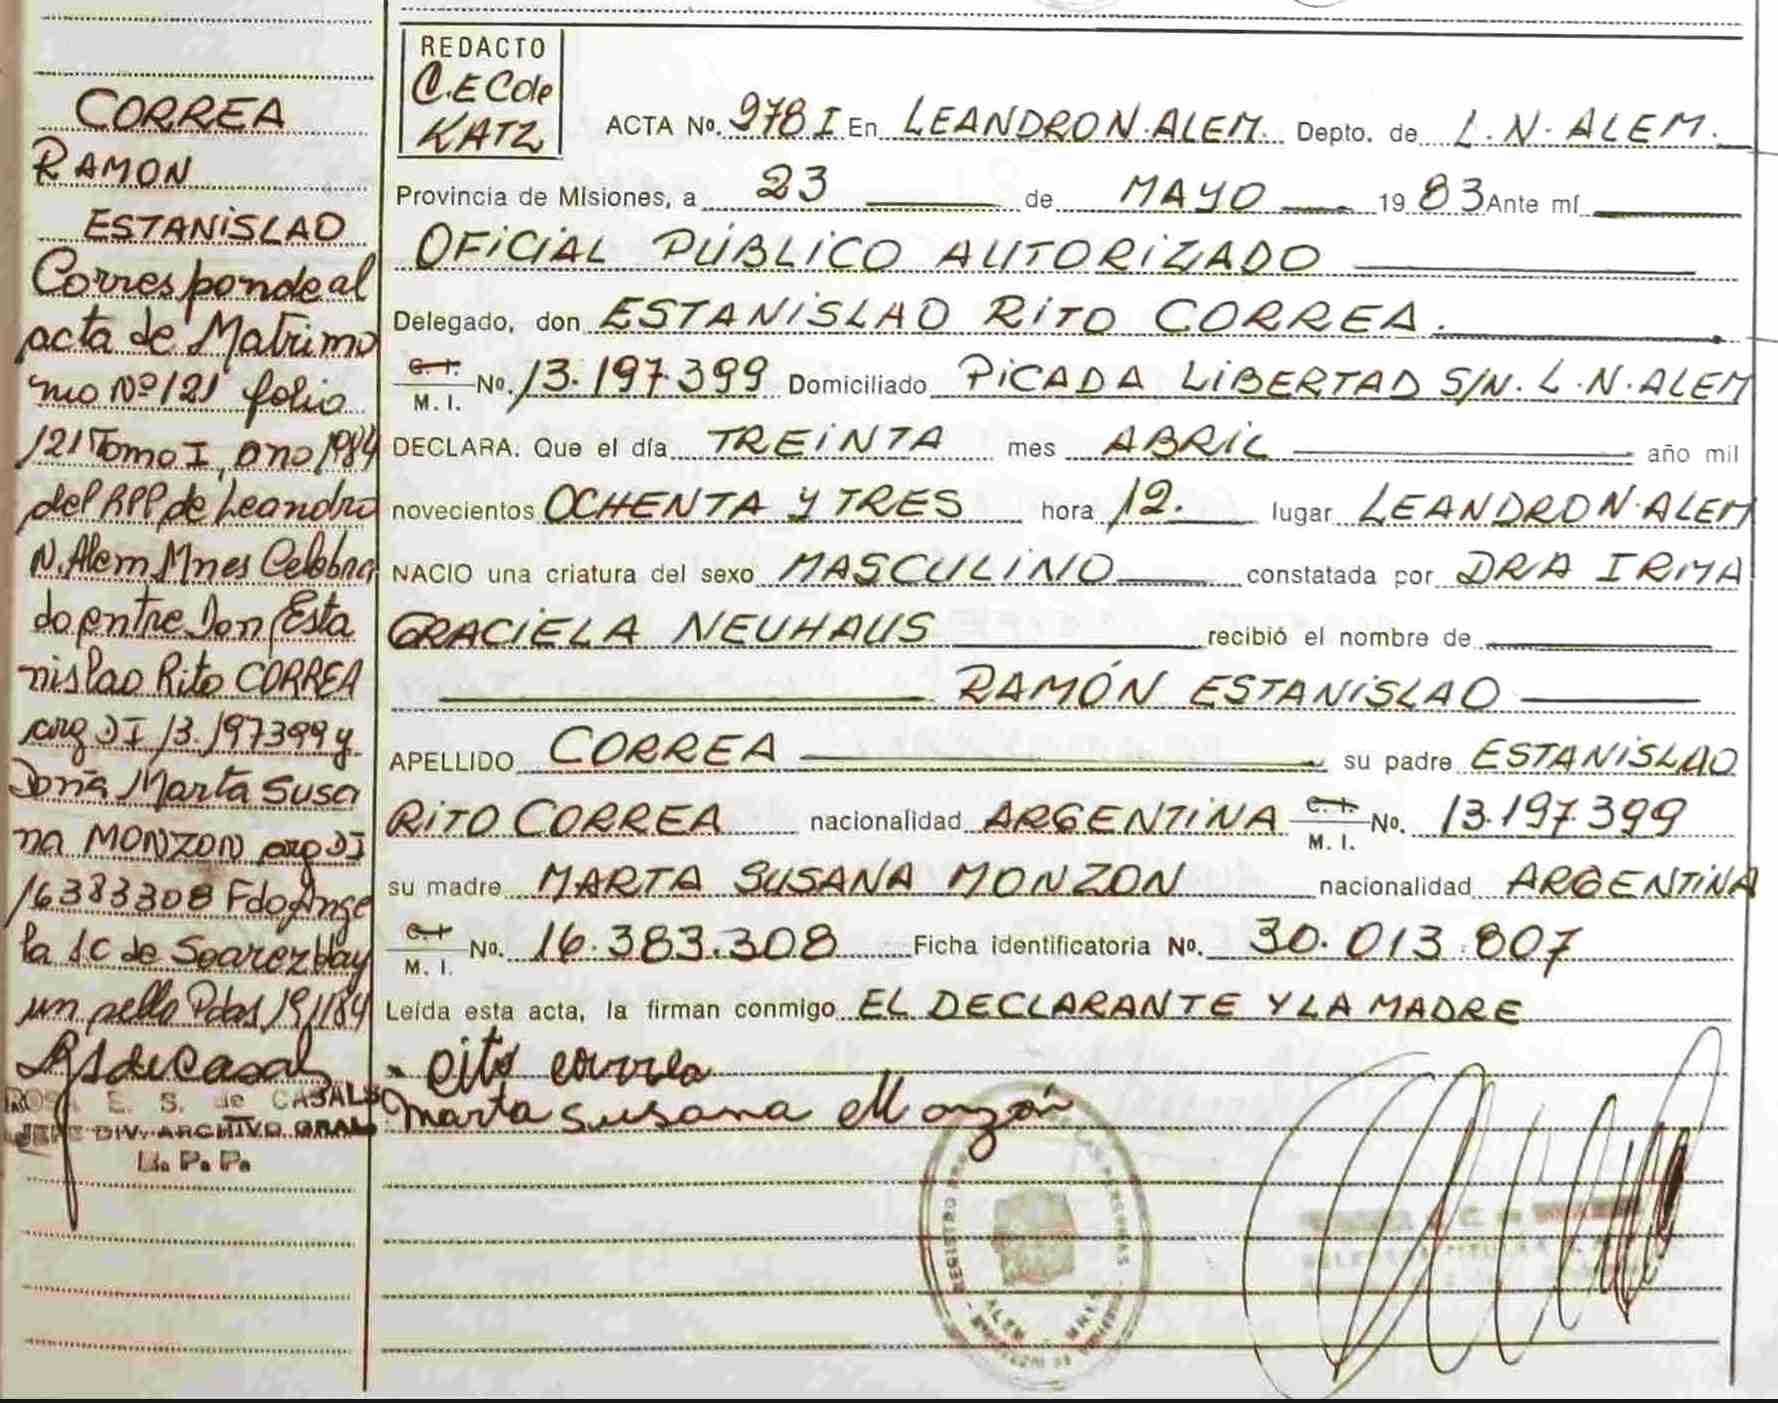 CORREA
RAMON
ESTANISLAO
Corresponde al
acta de Matrimo
nio Nº 121 folio
121 Tomo I, año 1984
del RPP de Leandro
N. Alem Mnes Celebra
do entre Don Esta
nislao Rito CORREA
arg DI 13.197399 y
Doña Marta Susa
na MONZON arg DI
16383308 Fdo Ange
la S C de Soarez hay
un sello Pdas 19/1/84
ROSA E. S. de CASALS
JEFE DIV. ARCHIVO GRAL
R. P. P.
REDACTO
C.E C de
KATZ
ACTA Nº. 978 I En LEANDRO N. ALEM. Depto. de L. N. ALEM.
Provincia de Misiones, a 23 de MAYO 1983 Ante mí
OFICIAL PÚBLICO AUTORIZADO
Delegado, don ESTANISLAO RITO CORREA.
C.I. M. I. Nº. 13.197.399 Domiciliado PICADA LIBERTAD S/N. L. N. ALEM
DECLARA: Que el día TREINTA mes ABRIL año mil
novecientos OCHENTA Y TRES hora 12. lugar LEANDRO N. ALEM
NACIO una criatura del sexo MASCULINO constatada por DRA IRMA
GRACIELA NEUHAUS recibió el nombre de
RAMÓN ESTANISLAO
APELLIDO CORREA su padre ESTANISLAO
RITO CORREA nacionalidad ARGENTINA C.I. M. I. Nº. 13.197.399
su madre MARTA SUSANA MONZON nacionalidad ARGENTINA
C.I. M. I. Nº. 16.383.308 Ficha identificatoria Nº. 30.013.807
Leída esta acta, la firman conmigo EL DECLARANTE Y LA MADRE
Rito Correa
Marta Susana Monzón